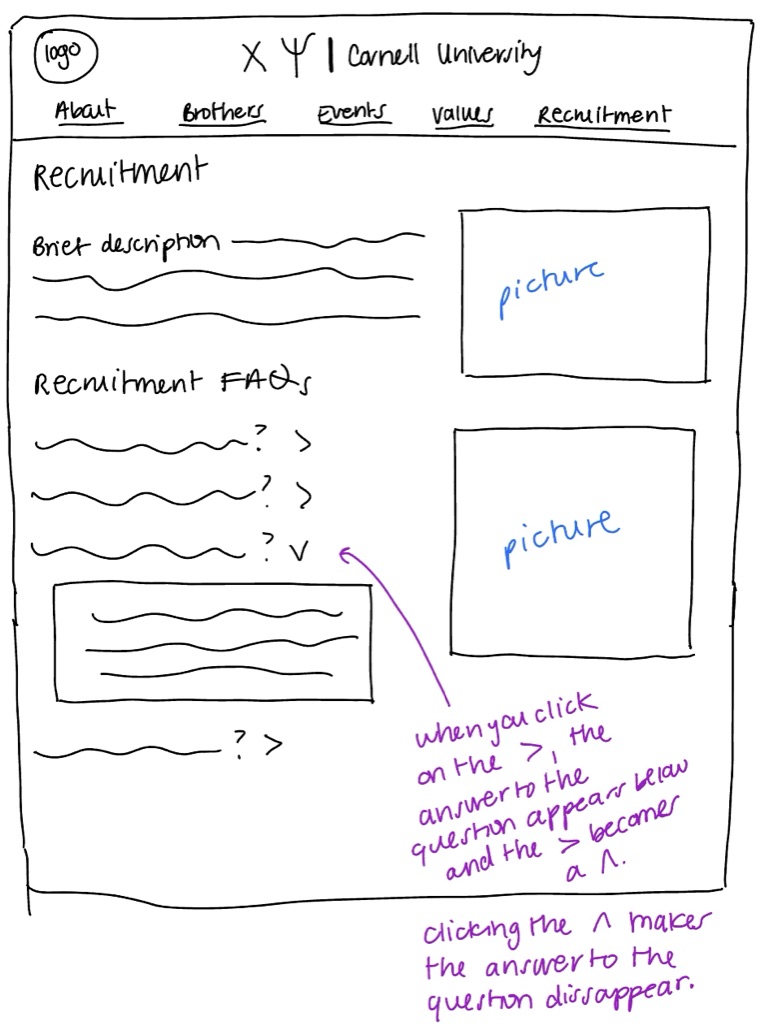 logo
Χ Ψ | Cornell University
About Brothers Events Values Recruitment
Recruitment
Brief description
picture
Recruitment FAQs
? >
? >
? v
picture
? >
when you click
on the >, the
answer to the
question appears below
and the > becomes
a ^.
clicking the ^ makes
the answer to the
question dissappear.